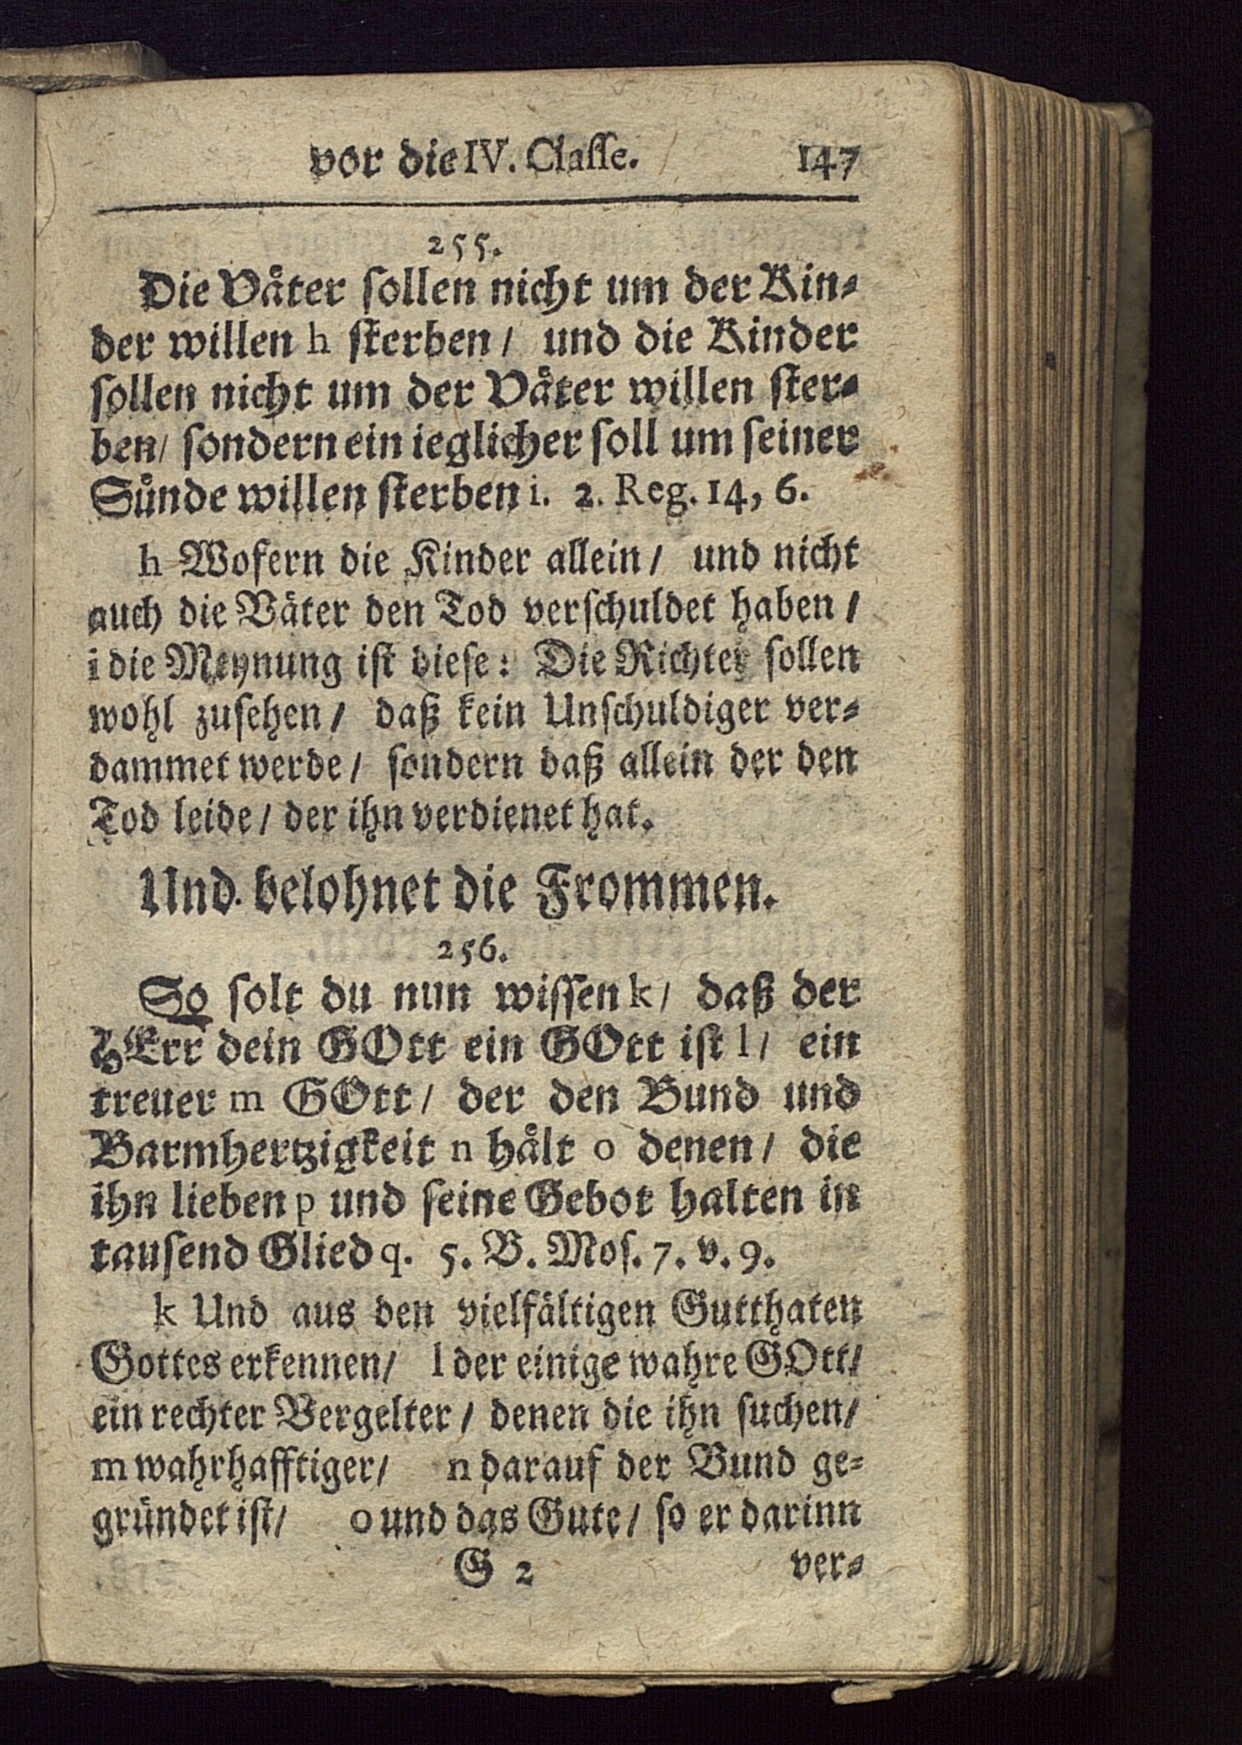 vor die IV. Classe. 147
255.
Die Väter sollen nicht um der Kin-
der willen h sterben / und die Kinder
sollen nicht um der Väter willen ster-
ben / sondern ein ieglicher soll um seiner
Sünde willen sterben i. 2. Reg. 14, 6.
h Wofern die Kinder allein / und nicht
auch die Väter den Tod verschuldet haben /
i die Meynung ist diese: Die Richter sollen
wohl zusehen / daß kein Unschuldiger ver-
dammet werde / sondern daß allein der den
Tod leide / der ihn verdienet hat.
Und belohnet die Frommen.
256.
So solt du nun wissen k / daß der
HErr dein GOtt ein GOtt ist l / ein
treuer m GOtt / der den Bund und
Barmhertzigkeit n hält o denen / die
ihn lieben p und seine Gebot halten in
tausend Glied q. 5. B. Mos. 7. v. 9.
k Und aus den vielfältigen Gutthaten
Gottes erkennen / l der einige wahre GOtt /
ein rechter Vergelter / denen die ihn suchen /
m wahrhafftiger / n darauf der Bund ge-
gründet ist / o und das Gute / so er darinn
G 2 ver-